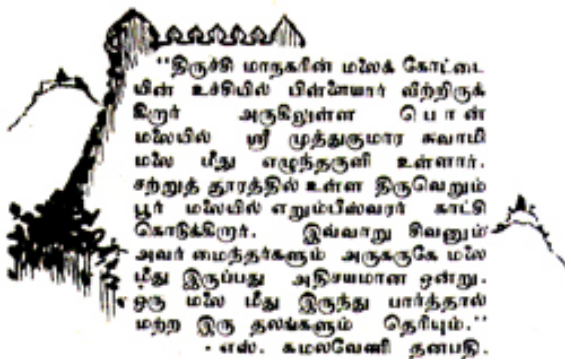 "திருச்சி மாநகரின் மலைக் கோட்டை
யின் உச்சியில் பிள்ளையார் வீற்றிருக்
கிறார் அருகிலுள்ள பொன்
மலையில் ஸ்ரீ முத்துகுமார சுவாமி
மலை மீது எழுந்தருளி உள்ளார்.
சற்றுத் தூரத்தில் உள்ள திருவெறும்
பூர் மலையில் எறும்பீஸ்வரர் காட்சி
கொடுக்கிறார். இவ்வாறு சிவனும்
அவர் மைந்தர்களும் அருகருகே மலை
மீது இருப்பது அதிசயமான ஒன்று.
ஒரு மலை மீது இருந்து பார்த்தால்
மற்ற இரு தலங்களும் தெரியும்."
- எஸ். கமலவேணி தனபதி.